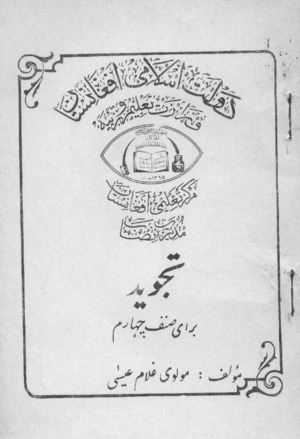 دولت اسلامی افغانستان
وزارت تعلیم و تربیه
۱۳۶۵
مرکز تعلیمی افغانستان
مدیریت نصاب
تجوید
برای صنف چهارم
مؤلف : مولوی غلام عیسی